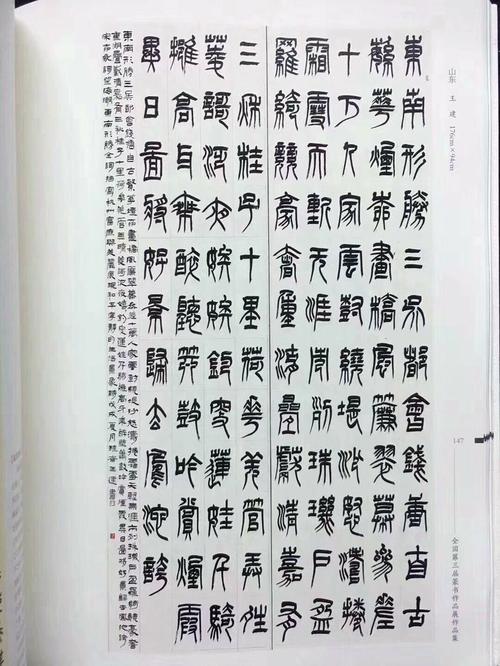 山东 王建 176cm×94cm
東南形勝三吳都會錢唐自古
繁華煙柳畫橋風簾翠幕參差
十万人家雲樹繞堤沙怒濤捲
霜雪天塹无涯市列珠璣戶盈
羅綺競豪奢重湖疊巘清嘉有
三秋桂子十里荷花羌管弄晴
菱歌泛夜嬉嬉釣叟蓮娃千騎
擁高牙乘醉聽簫鼓吟賞煙霞
異日圖將好景歸去鳳池誇
東南形勝三吳都會錢塘自古繁華煙柳畫橋風簾翠幕參差十萬人家雲樹繞堤沙怒濤捲霜雪天塹無涯市列珠璣戶盈羅綺競豪奢
重湖疊巘清嘉有三秋桂子十里荷花羌管弄晴菱歌泛夜嬉嬉釣叟蓮娃千騎擁高牙乘醉聽簫鼓吟賞煙霞異日圖將好景歸去鳳池誇
宋柳永詞望海潮東南形勝全詞描寫杭州富庶與美麗 戊戌夏月 王建書
147
全国第三届篆书作品展作品集